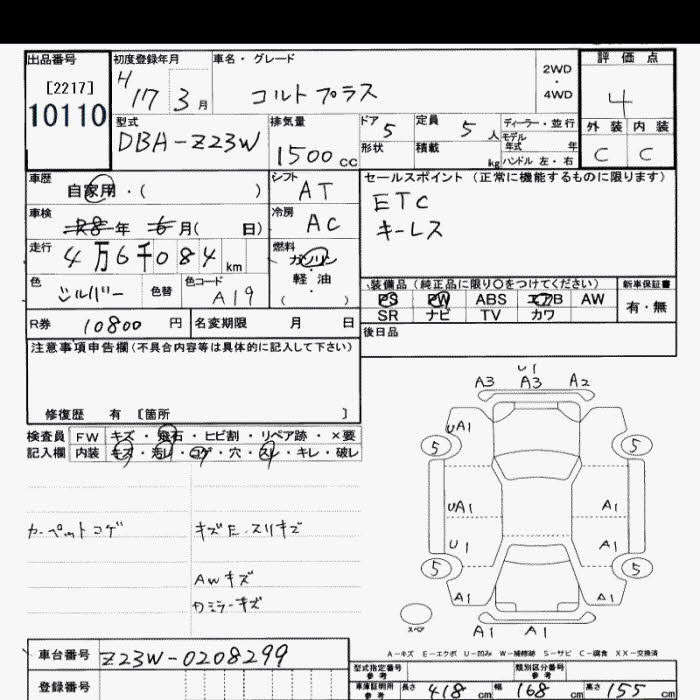 出品番号 初度登録年月 車名・グレード 評価点
[2217]
10110
H17 3月 コルトプラス 2WD・4WD 4
型式 DBA-Z23W
排気量 1500cc
ドア 5 定員 5人 ディーラー・並行
形状 積載 kg モデル年式 年 ハンドル 左・右
外装 内装
C C
車歴 自家用・( )
シフト AT
セールスポイント (正常に機能するものに限ります)
ETC
キーレス
車検 R8年 6月( 日)
冷房 AC
走行 4万6千084km
燃料 ガソリン・軽油 ( )
色 シルバー 色替 色コード A19
装備品 (純正品に限り○をつけてください) 新車保証書
PS PW ABS エアB AW 有・無
SR ナビ TV カワ
R券 10800円 名変期限 月 日
後日品
注意事項申告欄(不具合内容等は具体的に記入して下さい)
修復歴 有 [箇所 ]
検査員 FW キズ・飛石・ヒビ割・リペア跡・×要
記入欄 内装 キズ・汚レ・コゲ・穴・スレ・キレ・破レ
カーペットコゲ
キズE・スリキズ
AWキズ
カミラーキズ
U1
A3 A3 A2
UA1
5 5
UA1 A1
U1 A1
5 5
A1 A1
A1 A1
スペア
A-キズ E-エクボ U-凹み W-補修跡 S-サビ C-腐食 XX-交換済
車台番号 Z23W-0208299
登録番号
型式指定番号 参考 類別区分番号 参考
車庫証明用 参考 長さ 418cm 幅 168cm 高さ 155cm